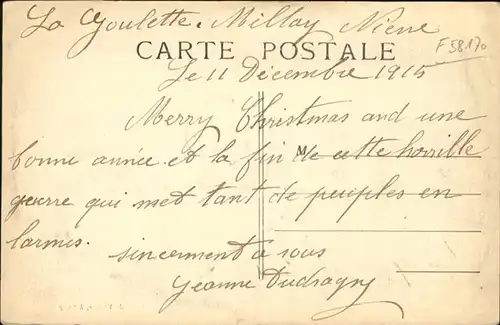 La Goulette. Millay Nièvre
CARTE POSTALE
F 58170
Le 11 Décembre 1915
Merry Christmas and une
bonne année et la fin de cette horrible
guerre qui met tant de peuples en
larmes.
sincerment a vous
Jeanne Dudragny